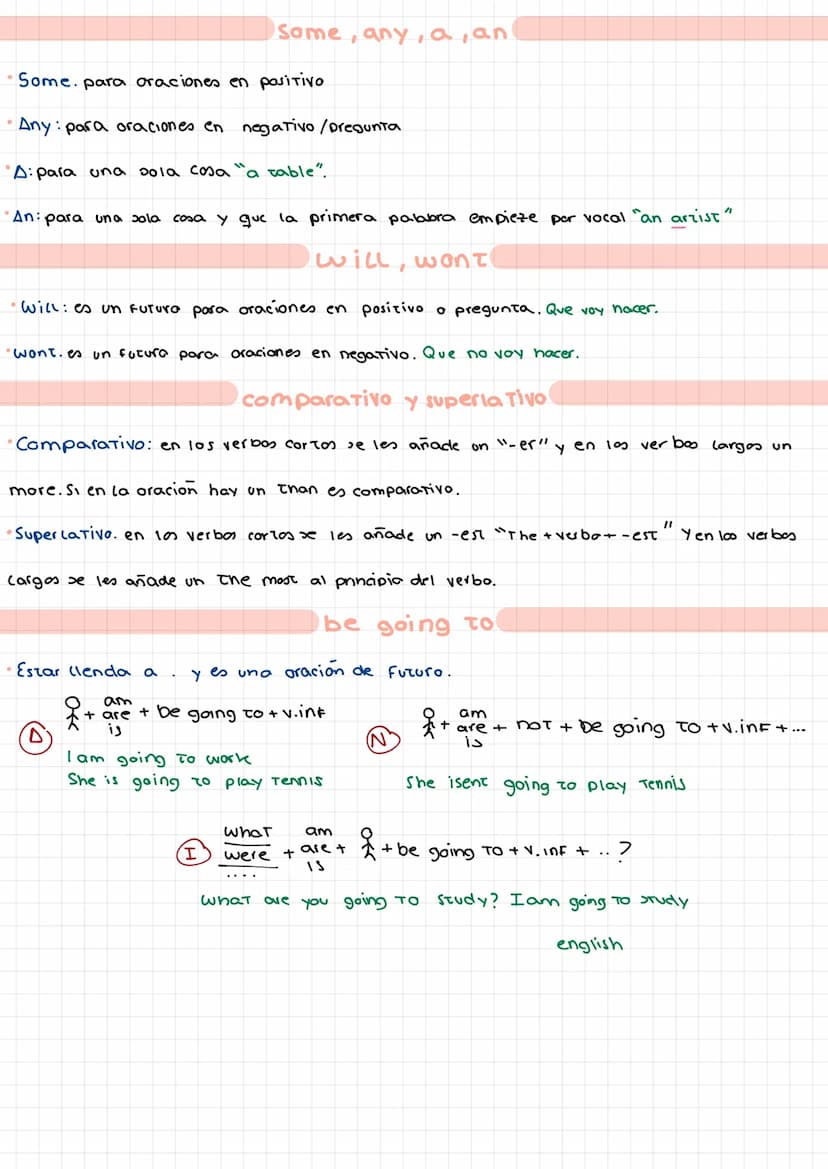 Some, any, a, an
Some. para oraciones en positivo
Any: para oraciones en negativo/pregunta
A: para una sola cosa "a table".
An: para una sola cosa y que la primera palabra empieze por vocal "an artist"
will, wont
Will: es un futuro para oraciones en positivo o pregunta. Que voy hacer.
wont. es un futuro para oraciones en negativo. Que no voy hacer.
comparativo y superlativo
Comparativo: en los verbos cortos se les añade un "-er" y en los verbos largos un
more. Si en la oración hay un than es comparativo.
Superlativo. en los verbos cortos se les añade un -est "The + verbo + -est" Y en los verbos
largos se les añade un the most al principio del verbo.
be going to
Estar llendo a . y es una oración de futuro.
A + am are is + be going to + v.inf
I am going to work
She is going to play tennis
N + am are is + not + be going to + v.inf + ...
She isent going to play tennis
I what were .... + am are is + + be going to + v.inf + .. ?
What are you going to study? I am going to study
english